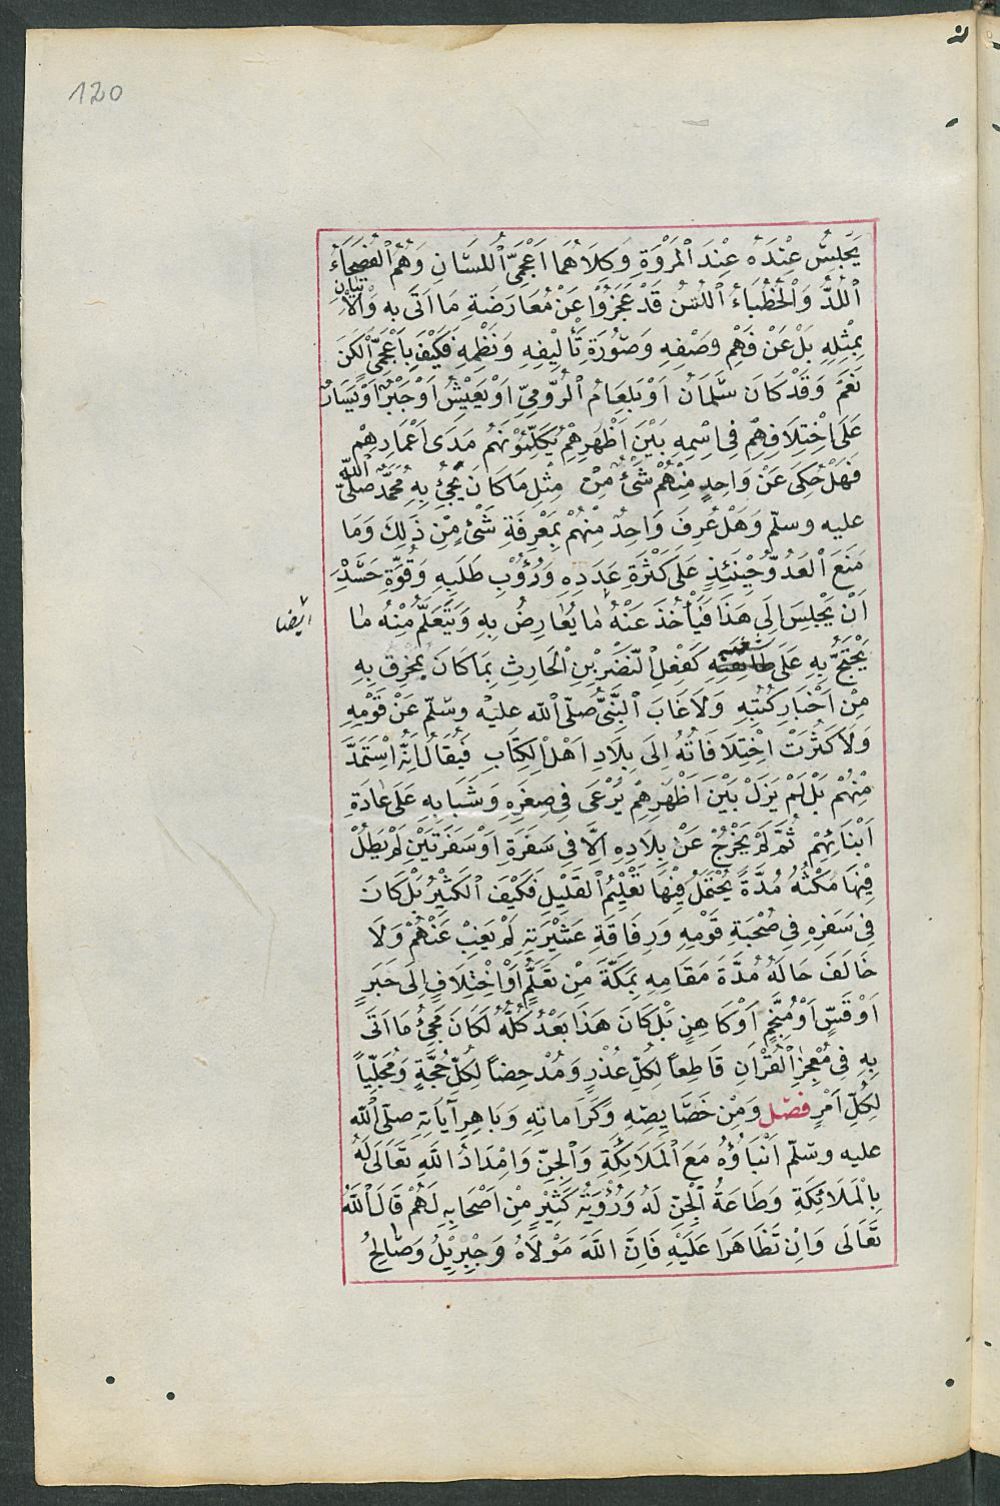 120
يَجْلِسُ عِنْدَهُ عِنْدَ الْمَرْوَةِ وَكِلَاهُمَا اَعْجَمِيُّ اللِّسَانِ وَهُمُ الْفُصَحَاءُ
اللُّدُّ وَالْخُطَبَاءُ اللُّسُنُ قَدْ عَجَزُوْا عَنْ مُعَارَضَةِ مَا اَتَى بِهِ وَالْاِتْيَانِ
بِمِثْلِهِ بَلْ عَنْ فَهْمِ وَصْفِهِ وَصُورَةِ تَأْلِيفِهِ وَنَظْمِهِ فَكَيْفَ بِاَعْجَمِيٍّ اَلْكَنَ
نَعَمْ وَقَدْ كَانَ سَلْمَانُ اَوْ بَلْعَامُ الرُّومِيُّ اَوْ يَعِيْشُ اَوْ جَبْرٌ اَوْ يَسَارٌ
عَلَى اخْتِلَافِهِمْ فِى اسْمِهِ بَيْنَ اَظْهُرِهِمْ يُكَلِّمُوْنَهُمْ مَدَى اَعْمَارِهِمْ
فَهَلْ حُكِىَ عَنْ وَاحِدٍ مِنْهُمْ شَىْءٌ مِنْ مِثْلِ مَا كَانَ يَجِىْءُ بِهِ مُحَمَّدٌ صَلَّى اللّٰهُ
عليه وسلّم وَهَلْ عُرِفَ وَاحِدٌ مِنْهُمْ بِمَعْرِفَةِ شَىْءٍ مِنْ ذٰلِكَ وَمَا
مَنَعَ الْعَدُوَّ حِيْنَئِذٍ عَلَى كَثْرَةِ عَدَدِهِ وَدُؤُبِ طَلَبِهِ وَقُوَّةِ حَسَدِهِ
اَنْ يَجْلِسَ اِلَى هَذَا فَيَأْخُذَ عَنْهُ مَا يُعَارِضُ بِهِ وَيَتَعَلَّمُ مِنْهُ مَا
ايضا
يَحْتَجُّ بِهِ عَلَى شغبه كَفِعْلِ النَّضْرِ بْنِ الْحَارِثِ بِمَا كَانَ يُمَخْرِقُ بِهِ
مِنْ اَخْبَارِ كُتُبِهِ وَلَا غَابَ النَّبِىُّ صلّى اللّٰه عليه وسلّم عَنْ قَوْمِهِ
وَلَا كَثُرَتْ اخْتِلَافَاتُهُ اِلَى بِلَادِ اَهْلِ الْكِتَابِ فَيُقَالُ اِنَّهُ اسْتَمَدَّ
مِنْهُمْ بَلْ لَمْ يَزَلْ بَيْنَ اَظْهُرِهِمْ يَرْعَى فِى صِغَرِهِ وَشَبَابِهِ عَلَى عَادَةِ
اَبْنَائِهِمْ ثُمَّ لَمْ يَخْرُجْ عَنْ بِلَادِهِ اِلَّا فِى سَفَرَةٍ اَوْ سَفْرَتَيْنِ لَمْ يَطُلْ
فِيْهَا مَكْثُهُ مُدَّةً يُحْتَمَلُ فِيْهَا تَعْلِيْمُ الْقَلِيْلِ فَكَيْفَ الْكَثِيْرُ بَلْ كَانَ
فِى سَفَرِهِ فِى صُحْبَةِ قَوْمِهِ وَرِفَاقَةِ عَشِيْرَتِهِ لَمْ يَغِبْ عَنْهُمْ وَلَا
خَالَفَ حَالَهُ مُدَّةَ مَقَامِهِ بِمَكَّةَ مِنْ تَعَلُّمٍ اَوْ اخْتِلَافٍ اِلَى حَبْرٍ
اَوْ قَسٍّ اَوْ مُنَجِّمٍ اَوْ كَاهِنٍ بَلْ كَانَ هَذَا بَعْدُ كُلُّهُ لَكَانَ مَجِىْءُ مَا اَتَى
بِهِ فِى مُعْجِزِ الْقُرْاٰنِ قَاطِعًا لِكُلِّ عُذْرٍ وَمُدْحِضًا لِكُلِّ حُجَّةٍ وَمُجَلِّيًا
لِكُلِّ اَمْرٍ فصل وَمِنْ خَصَايِصِهِ وَكَرَامَاتِهِ وَبَاهِرِ آيَاتِهِ صلّى اللّٰه
عليه وسلّم اَنْبَاؤُهُ مَعَ الْمَلَائِكَةِ وَالْجِنِّ وَاِمْدَادُ اللّٰهِ تَعَالَى لَهُ
بِالْمَلَائِكَةِ وَطَاعَةُ الْجِنِّ لَهُ وَرُؤْيَةُ كَثِيْرٍ مِنْ اَصْحَابِهِ لَهُمْ قَالَ اللّٰهُ
تَعَالَى وَاِنْ تَظَاهَرَا عَلَيْهِ فَاِنَّ اللّٰهَ هُوَ مَوْلَاهُ وَجِبْرِيْلُ وَصَالِحُ